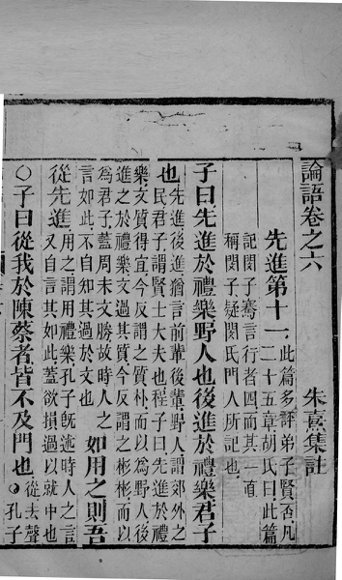 論語卷之六
朱熹集註
先進第十一
此篇多評弟子賢否凡
二十五章胡氏曰此篇
記閔子騫言行者四而其一直
稱閔子疑閔氏門人所記也
子曰先進於禮樂野人也後進於禮樂君子
也
先進後進猶言前輩後輩野人謂郊外之
民君子謂賢士大夫也程子曰先進於禮
樂文質得宜今反謂之質朴而以爲野人後
進之於禮樂文過其質今反謂之彬彬而以
爲君子蓋周末文勝故時人之
言如此不自知其過於文也
如用之則吾
從先進
用之謂用禮樂孔子旣述時人之言
又自言其如此蓋欲損過以就中也
○子曰從我於陳蔡者皆不及門也
從去聲
○孔子